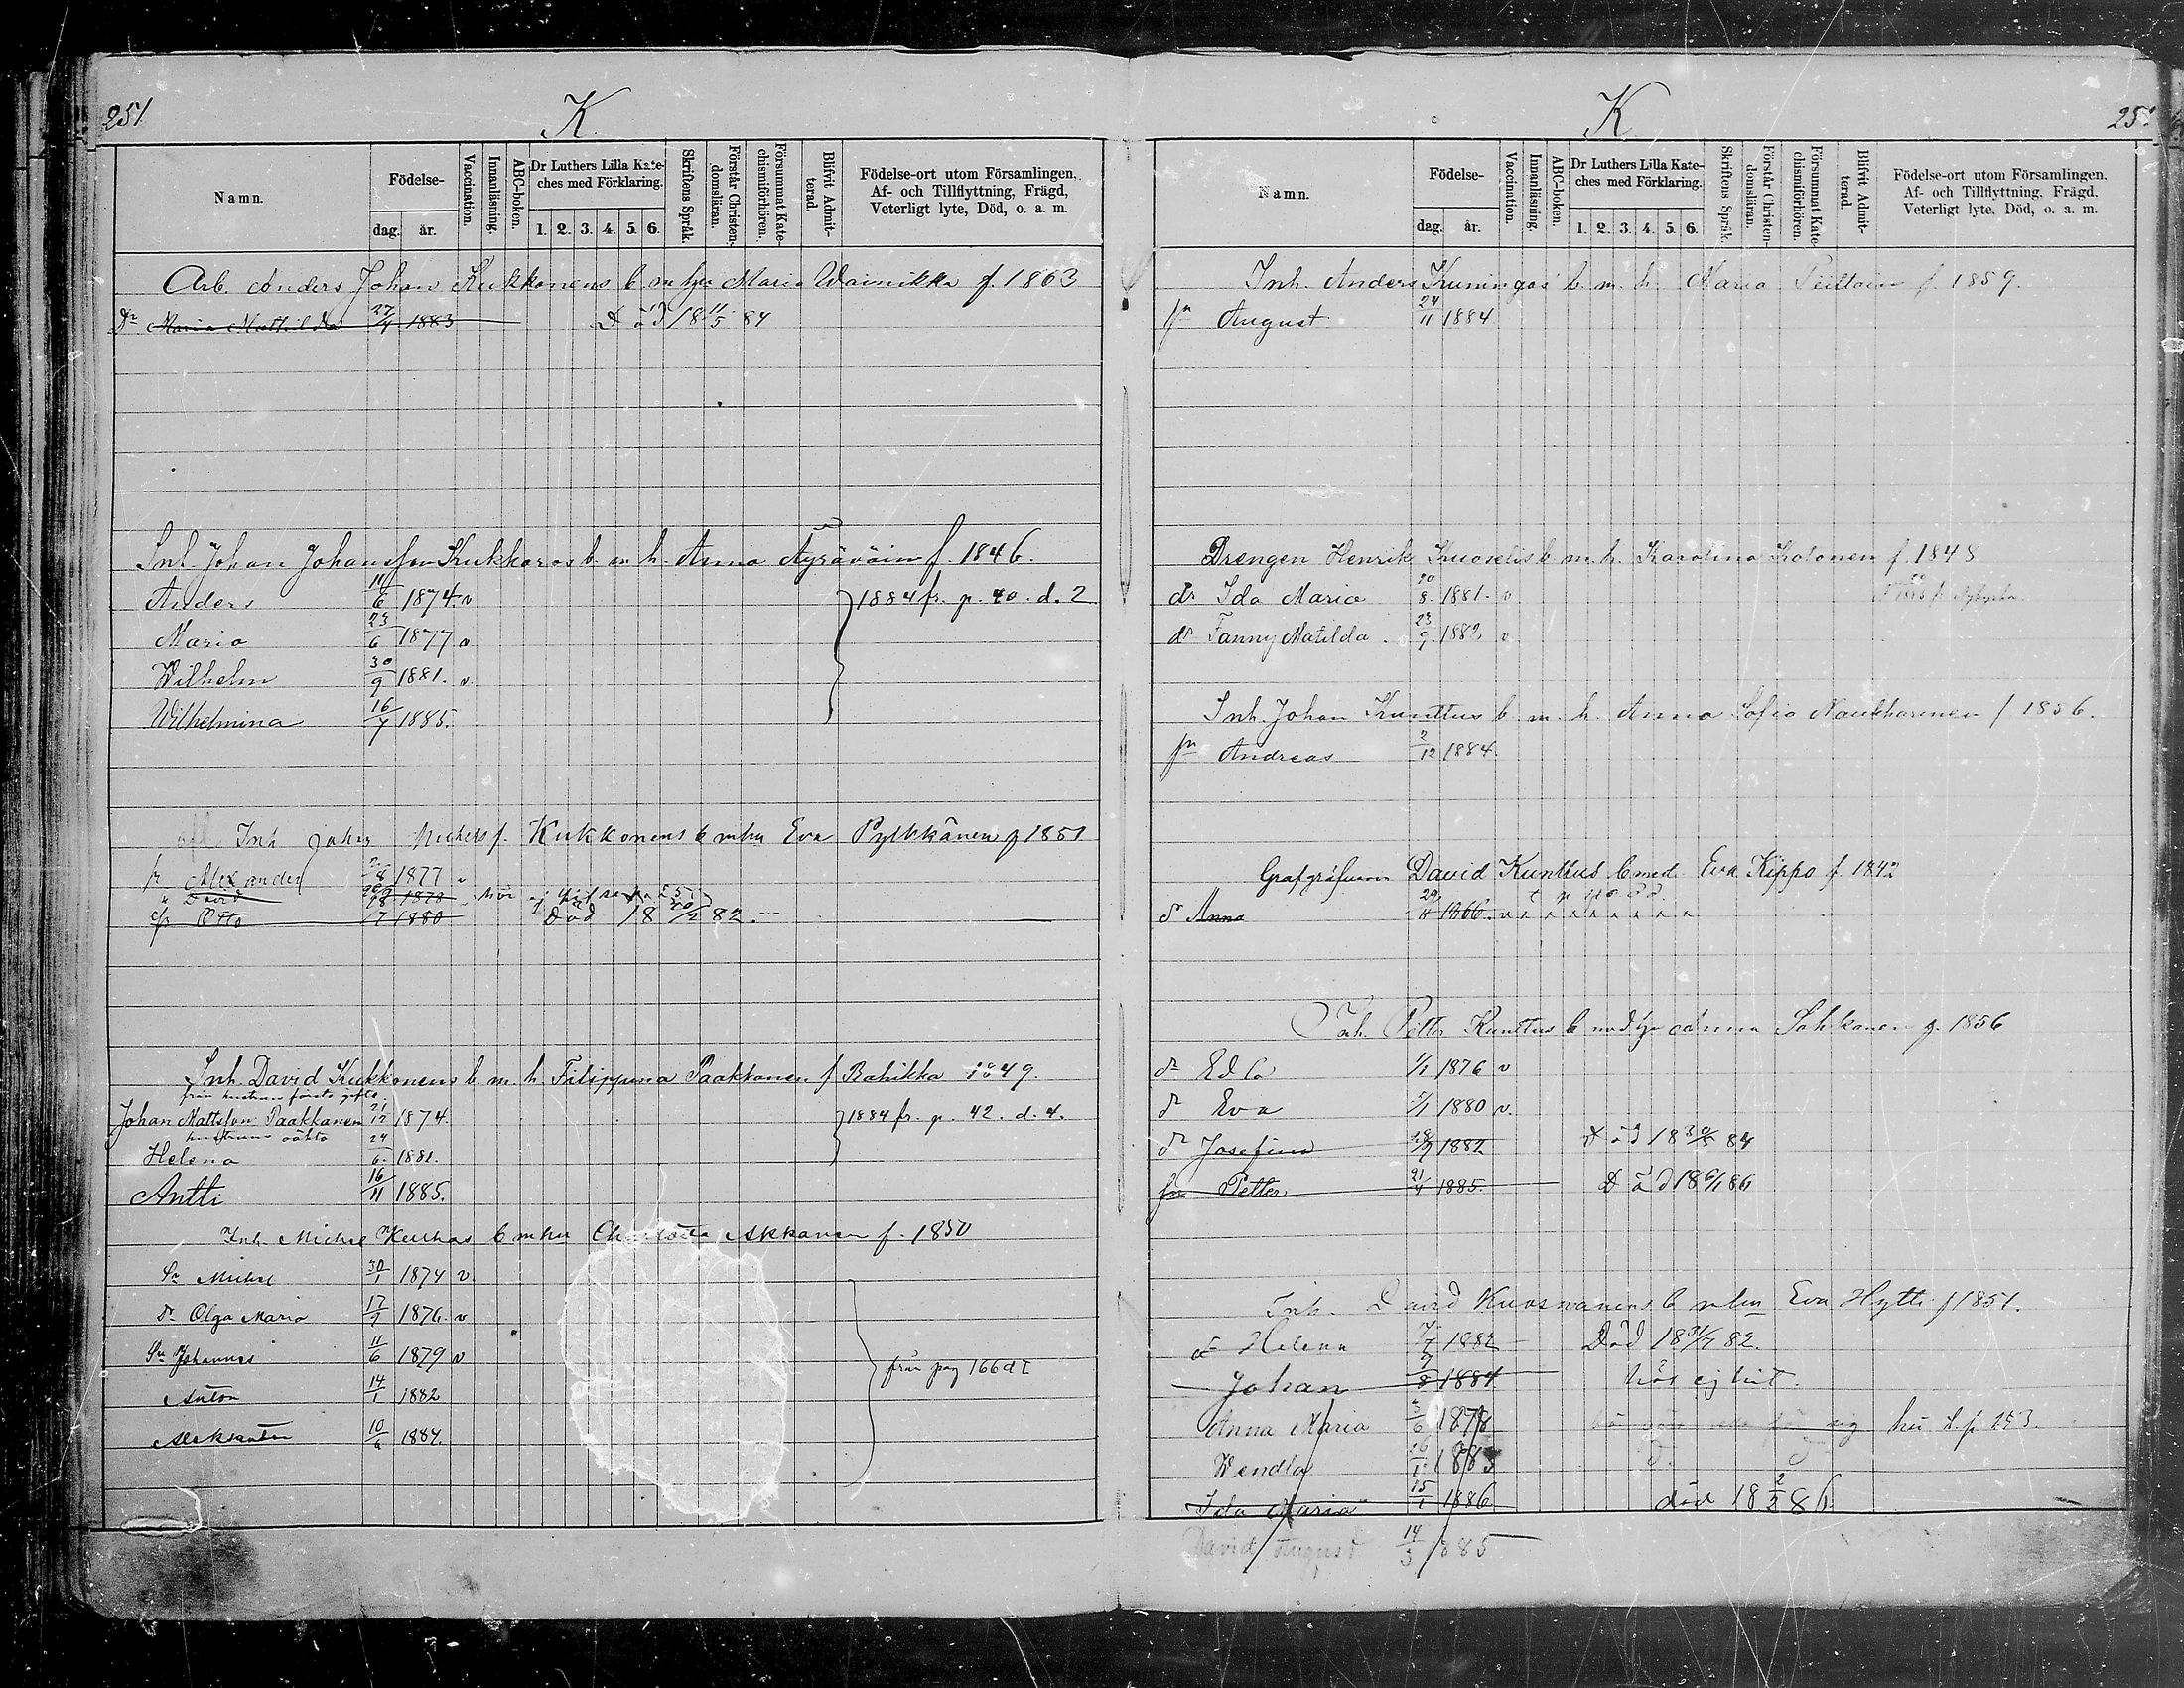 251
K
Namn.
Födelse-
dag. år.
Vaccination.
Innanläsning.
ABC-boken.
Dr Luthers Lilla Kate-
ches med Förklaring.
1. 2. 3. 4. 5. 6.
Skriftens Språk.
Förstår Christen-
domsläran.
Försummat Kate-
chismiförhören.
Blifvit Admit-
terad.
Födelse-ort utom Församlingen,
Af- och Tillflyttning, Frägd,
Veterligt lyte, Död, o. a. m.
Arb. Anders Johan Kukkonens b. m. hu Maria Wainikka f. 1863
Dr Maria Mathilda 27/4 1883 Död 18 11/5 84
Inh. Johan Johansson Kukkonos b. m. h. Anna Äyräväin f. 1846.
Anders 11/6 1874. v 1884 fr. p. 40. d. 2
Maria 23/6 1877 v
Wilhelm 30/9 1881. v.
Wilhelmina 16/7 1885.
Inh Johan Michels s. Kukkonens b m hu Eva Pylkkänen f 1851
Alexander 2/8 1877 v
David 1878
Otto /7 1880 Död 18 20/2 82.
Inh. David Kukkonens b. m. h. Filippina Paakkanen f Rahikka 1849.
från hustruns första gifte.
Johan Mattsson Paakkanen 21/12 1874. 1884 fr. p. 42. d. 4.
hustruns oäkta
Helena 24/6. 1881.
Antti 16/11 1885.
Inh. Michel Kurhas b m hu Charlotta Akkanen f. 1850
Sn Michel 30/1 1874 v.
Dr Olga Maria 17/9 1876. v
Sn Johannes 11/6 1879 v från pag 166 d I
Anton 14/1 1882
Aleksander 10/6 1884.
K
251
Namn.
Födelse-
dag. år.
Vaccination.
Innanläsning.
ABC-boken.
Dr Luthers Lilla Kate-
ches med Förklaring.
1. 2. 3. 4. 5. 6.
Skriftens Språk.
Förstår Christen-
domsläran.
Försummat Kate-
chismiförhören.
Blifvit Admit-
terad.
Födelse-ort utom Församlingen.
Af- och Tillflyttning, Frägd,
Veterligt lyte, Död, o. a. m.
Inh. Anders Kuningas b. m. h. Maria f. 1859.
sn August 24/11 1884
Drengen Henrik Kuoselis b. m. h. Karolina Kolonen f. 1848
dr Ida Maria 20/8. 1881. v
dr Fanny Matilda. 23/9. 1882 v
Inh. Johan Kunttus b. m. h. Anna Sofia Naukkarinen f 1856.
sn Andreas 2/12 1884.
David Kunttus b med Eva Kippo f. 1842
d Anna 29/11 1866.
Inh. Petter Kunttus b med hu Anna Sahkonen f. 1856
dr Eda 1/1 1876 v
dr Eva 5/1 1880 v.
dr Josefina 18/9 1882 Död 18 30/5 84
sn Petter 21/4 1885. Död 18 6/1 86
Inh. David Kuosmanens b m hu Eva Hytti f 1851.
dr Helena 7/7 1882 Död 18 31/7 82.
Johan 9/8 1884 hör ej hit.
Anna Maria 3/6 1878 hu d. p 253.
Wendla 16/1 1883
Ida Maria 15/1 1886 död 18 2/2 86
David August 14/3 1885